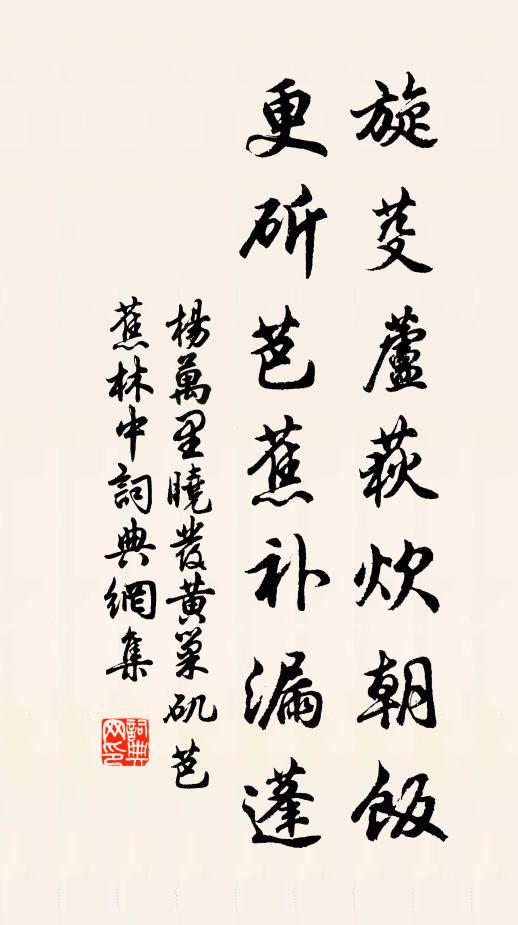 旋芟蘆荻炊朝飯
更斫芭蕉补漏蓬
楊萬里曉發黄巢矶芭
蕉林中詞典網集
詞典网印